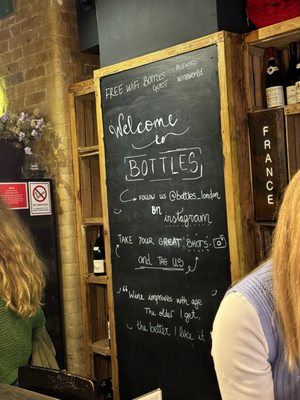 FREE WIFI: BOTTLES GUEST
PASSWORD:
WINEWORLD
Welcome
to
BOTTLES
FOLLOW US @bottles_london
on
instagram
TAKE YOUR GREAT SHOTS
and TAG US
"Wine improves with age.
The older I get,
the better I like it"
FRANCE